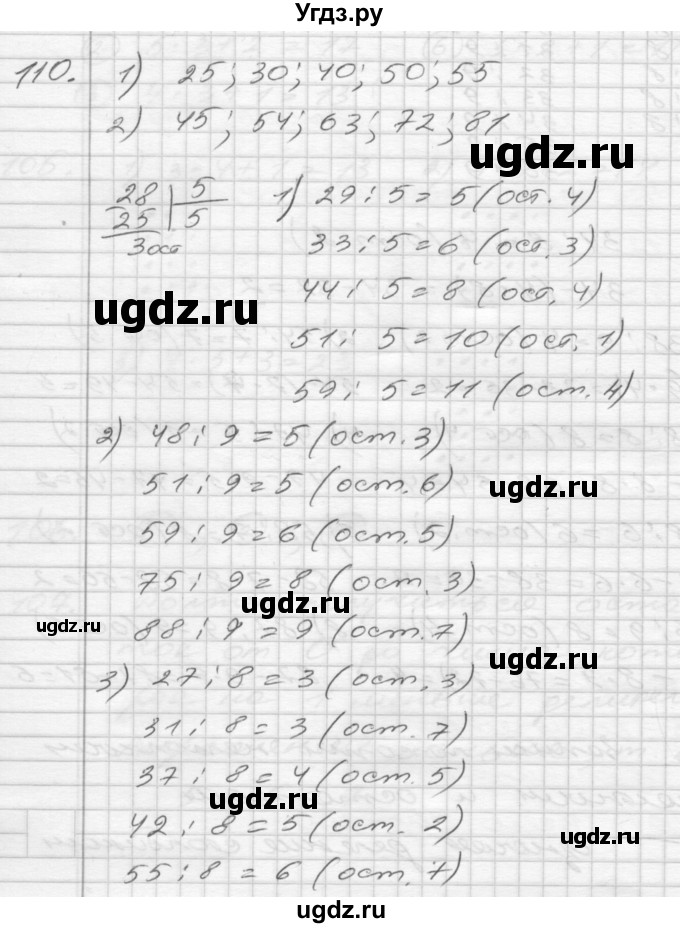 Угдз.ру
110. 1) 25; 30; 40; 50; 55
2) 45; 54; 63; 72; 81
ugdz.ru
28 | 5
25 | 5
3 ост
1) 29 : 5 = 5 (ост. 4)
33 : 5 = 6 (ост. 3)
44 : 5 = 8 (ост. 4)
ugdz.ru
51 : 5 = 10 (ост. 1)
59 : 5 = 11 (ост. 4)
2) 48 : 9 = 5 (ост. 3)
51 : 9 = 5 (ост. 6)
ugdz.ru
59 : 9 = 6 (ост. 5)
75 : 9 = 8 (ост. 3)
ugdz.ru
ugdz.ru
88 : 9 = 9 (ост. 7)
ugdz.ru
3) 27 : 8 = 3 (ост. 3)
31 : 8 = 3 (ост. 7)
37 : 8 = 4 (ост. 5)
ugdz.ru
42 : 8 = 5 (ост. 2)
ugdz.ru
55 : 8 = 6 (ост. 7)
ugdz.ru